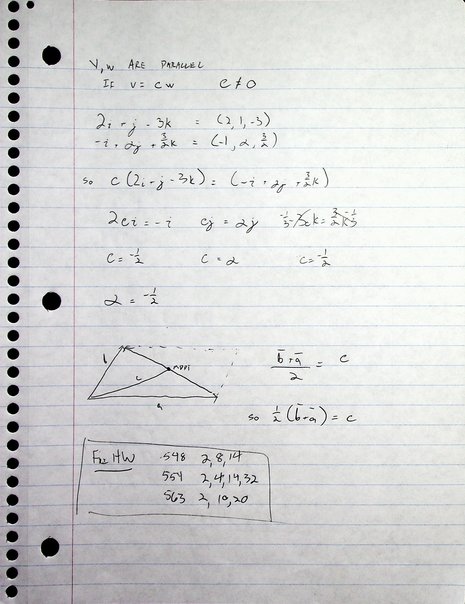 V, W ARE PARALLEL
IF V = C W C ≠ 0
2i + j - 3k = (2, 1, -3)
-i + αj + 3/2 k = (-1, α, 3/2)
so C (2i + j - 3k) = (-i + αj + 3/2 k)
2ci = -i cj = αj -1/3 · -3ck = 3/2 k · -1/3
C = -1/2 C = α C = -1/2
α = -1/2
b
c
a
(b̄ + ā)/2 = C
so 1/2 (b̄ + ā) = C
HW 548 2, 8, 14
554 2, 4, 14, 32
563 2, 10, 20